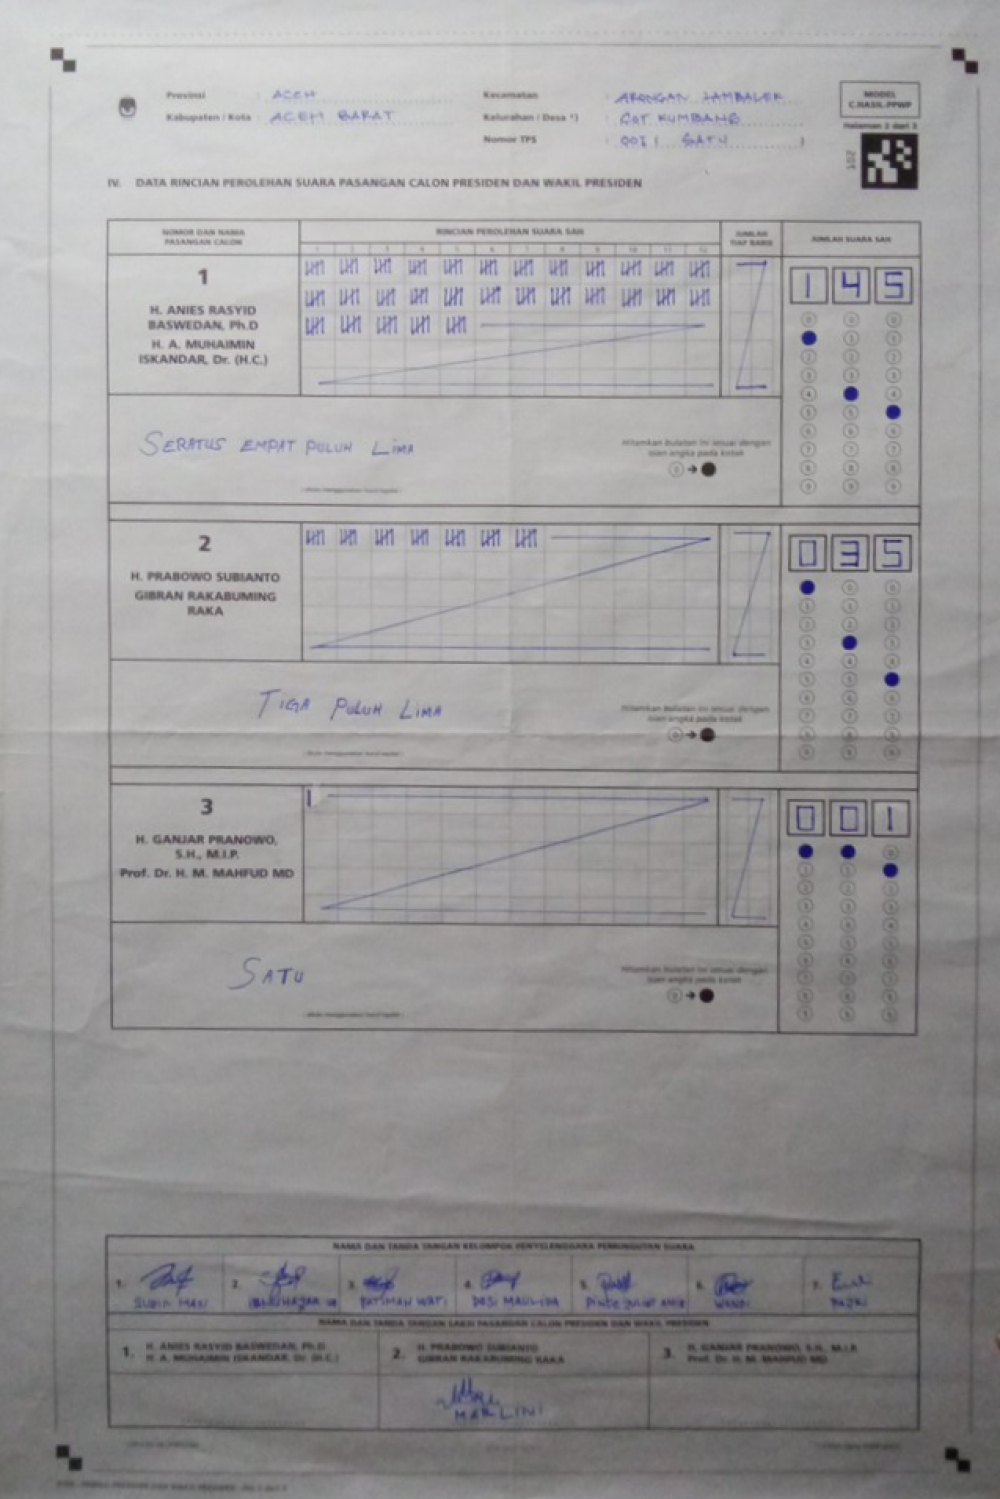 Provinsi : ACEH
Kabupaten / Kota : ACEH BARAT
Kecamatan : ARONGAN LAMBALEK
Kelurahan / Desa *) : COT KUMBANG
Nomor TPS : 001 ( SATU )
MODEL
C.HASIL-PPWP
Halaman 2 dari 3
102
IV. DATA RINCIAN PEROLEHAN SUARA PASANGAN CALON PRESIDEN DAN WAKIL PRESIDEN
NOMOR DAN NAMA
PASANGAN CALON
RINCIAN PEROLEHAN SUARA SAH
JUMLAH
TIAP BARIS
JUMLAH SUARA SAH
1 2 3 4 5 6 7 8 9 10 11 12
1
H. ANIES RASYID
BASWEDAN, Ph.D
H. A. MUHAIMIN
ISKANDAR, Dr. (H.C.)
1 4 5
SERATUS EMPAT PULUH LIMA
Hitamkan bulatan ini sesuai dengan
isian angka pada kotak
2
H. PRABOWO SUBIANTO
GIBRAN RAKABUMING
RAKA
0 3 5
TIGA PULUH LIMA
Hitamkan bulatan ini sesuai dengan
isian angka pada kotak
3
H. GANJAR PRANOWO,
S.H., M.I.P.
Prof. Dr. H. M. MAHFUD MD
0 0 1
SATU
Hitamkan bulatan ini sesuai dengan
isian angka pada kotak
NAMA DAN TANDA TANGAN KELOMPOK PENYELENGGARA PEMUNGUTAN SUARA
1. 2. 3. 4. 5. 6. 7.
FATIMAH WATI DESI MAULIDA
NAMA DAN TANDA TANGAN SAKSI PASANGAN CALON PRESIDEN DAN WAKIL PRESIDEN
1. H. ANIES RASYID BASWEDAN, Ph.D
H. A. MUHAIMIN ISKANDAR, Dr. (H.C.)
2. H. PRABOWO SUBIANTO
GIBRAN RAKABUMING RAKA
3. H. GANJAR PRANOWO, S.H., M.I.P.
Prof. Dr. H. M. MAHFUD MD
MARLINI